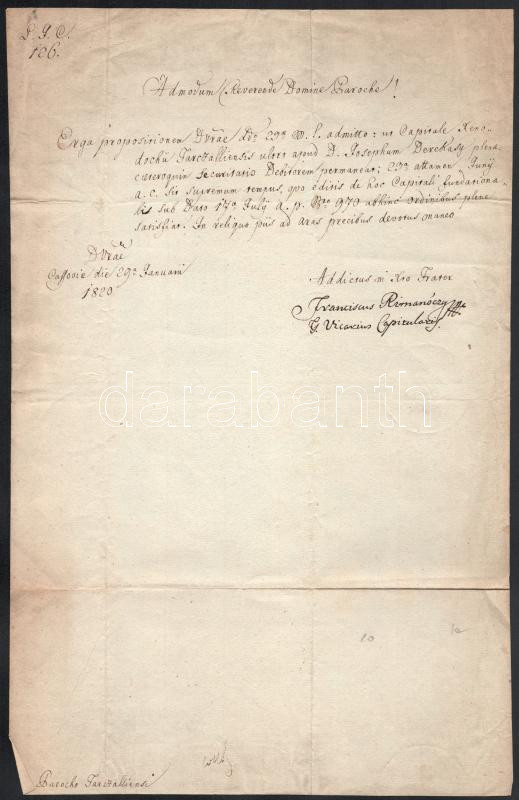 126.
Admodum Reverende Domine Paroche!
Erga propositionem Dvrae ddo 29a admitto: ut Capitale Xeno-
dochii Tarczalliensis ultro apud D. Josephum Derekasy plena
caeteroquin securitatis Debitorem permaneat; 29a attamen Junij
a. c. sit supremum tempus, quo editis de hoc Capitali fundationa-
bus sub Dato 17a Julij a. p. Nro 970 abhinc ordinibus plene
satisfiat. In reliquo piis ad aras precibus devotus maneo
Dvrae
Cassoviae die 29a Januarii
1820
Addictus in Xro Frater
Franciscus Rimanóczy
G. Vicarius Capitularis
darabanth
10
Parocho Tarczalliensi